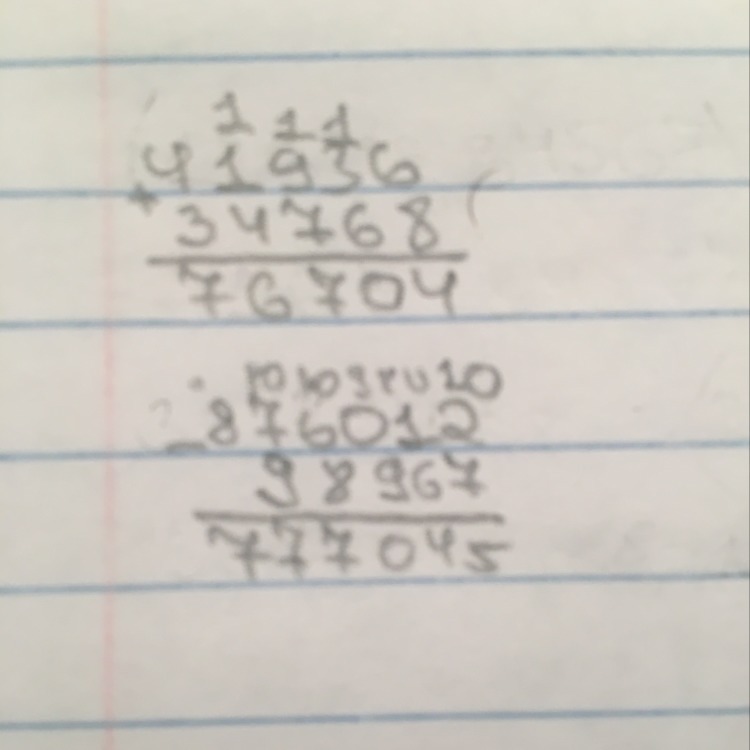 1 1 1
41936
+
34768
76704
10 10 9 10 10
- 876012
98967
777045